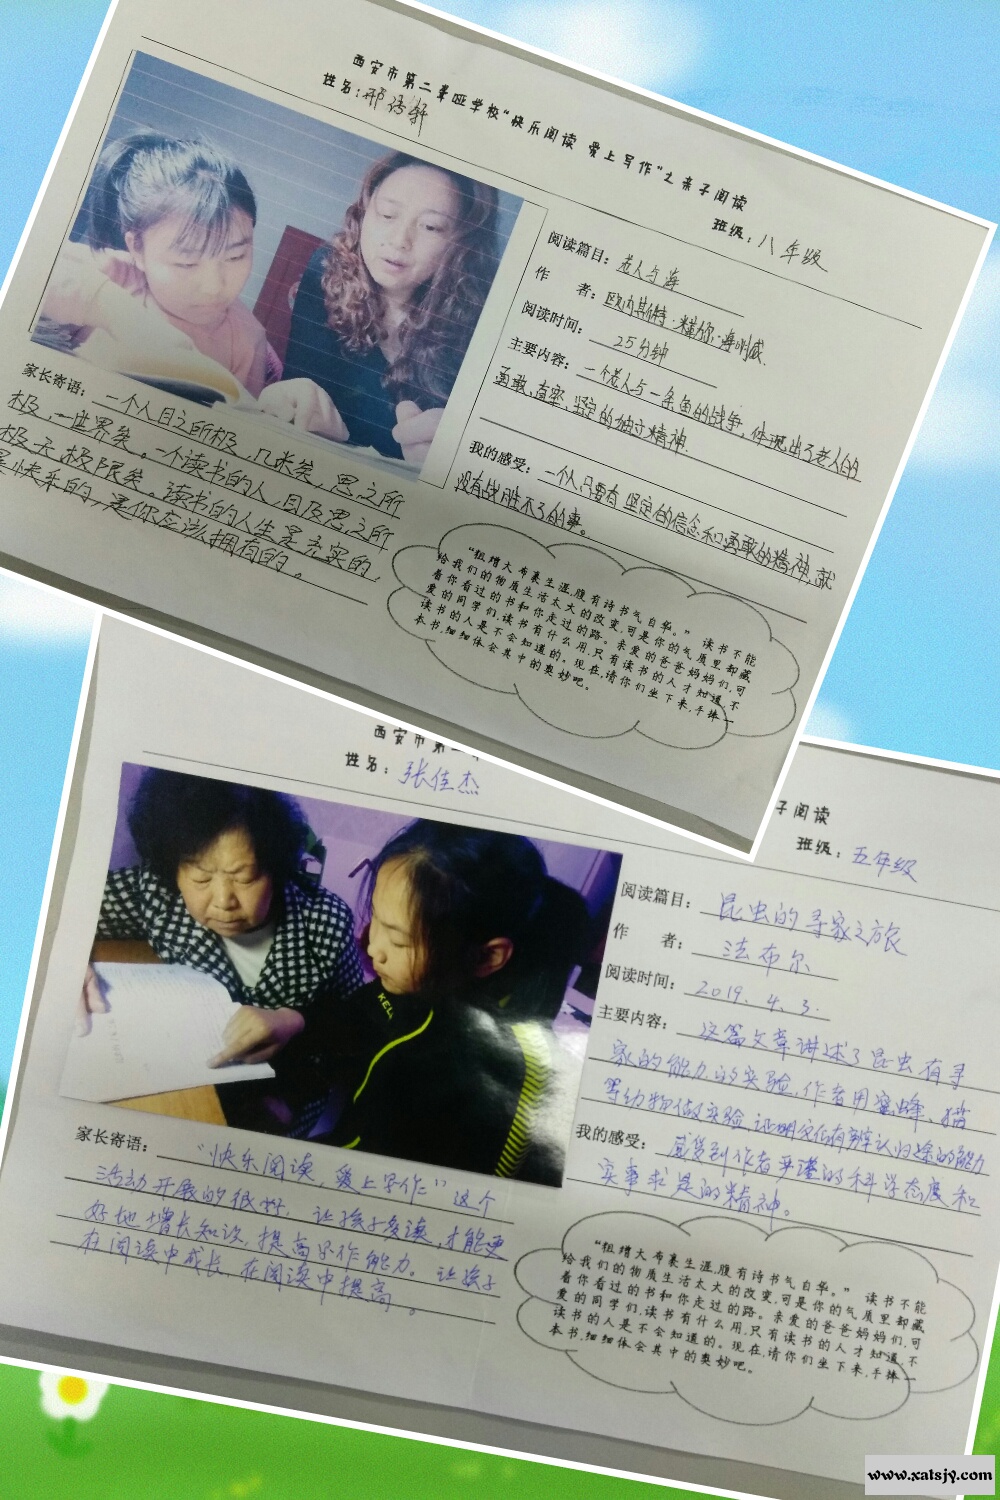 西安市第二聋哑学校“快乐阅读 爱上写作”之亲子阅读
姓名：邢语轩
班级：八年级
阅读篇目：老人与海
作 者：欧内斯特·米勒尔·海明威.
阅读时间：25分钟
主要内容：一个老人与一条鱼的战争，体现出了老人的
勇敢、直率、坚定的独立精神.
我的感受：一个人只要有坚定的信念和勇敢的精神，就
没有战胜不了的事。
家长寄语：一个人目之所极，几米矣，思之所
极，一世界矣。一个读书的人，目及思之所
极无极限矣。读书的人生是充实的，
是快乐的，是你应该拥有的。
“粗缯大布裹生涯，腹有诗书气自华。” 读书不能
给我们的物质生活太大的改变，可是你的气质里却藏
着你看过的书和你走过的路。亲爱的爸爸妈妈们，可
爱的同学们，读书有什么用，只有读书的人才知道，不
读书的人是不会知道的。现在，请你们坐下来，手捧一
本书，细细体会其中的奥妙吧。
西安市第二
子阅读
姓名：张佳杰
班级：五年级
阅读篇目：昆虫的寻家之旅
作 者：法布尔
阅读时间：2019.4.3.
主要内容：这篇文章讲述了昆虫有寻
家的能力的实验，作者用蜜蜂、猫
等动物做实验，证明它们有辨认归途的能力
我的感受：感觉到作者严谨的科学态度和
实事求是的精神。
KEL
家长寄语：“快乐阅读，爱上写作”这个
活动开展的很好，让孩子多读，才能更
好地增长知识，提高写作能力。让孩子
在阅读中成长，在阅读中提高。
“粗缯大布裹生涯，腹有诗书气自华。” 读书不能
给我们的物质生活太大的改变，可是你的气质里却藏
着你看过的书和你走过的路。亲爱的爸爸妈妈们，可
爱的同学们，读书有什么用，只有读书的人才知道，不
读书的人是不会知道的。现在，请你们坐下来，手捧一
本书，细细体会其中的奥妙吧。
www.xatsjy.com